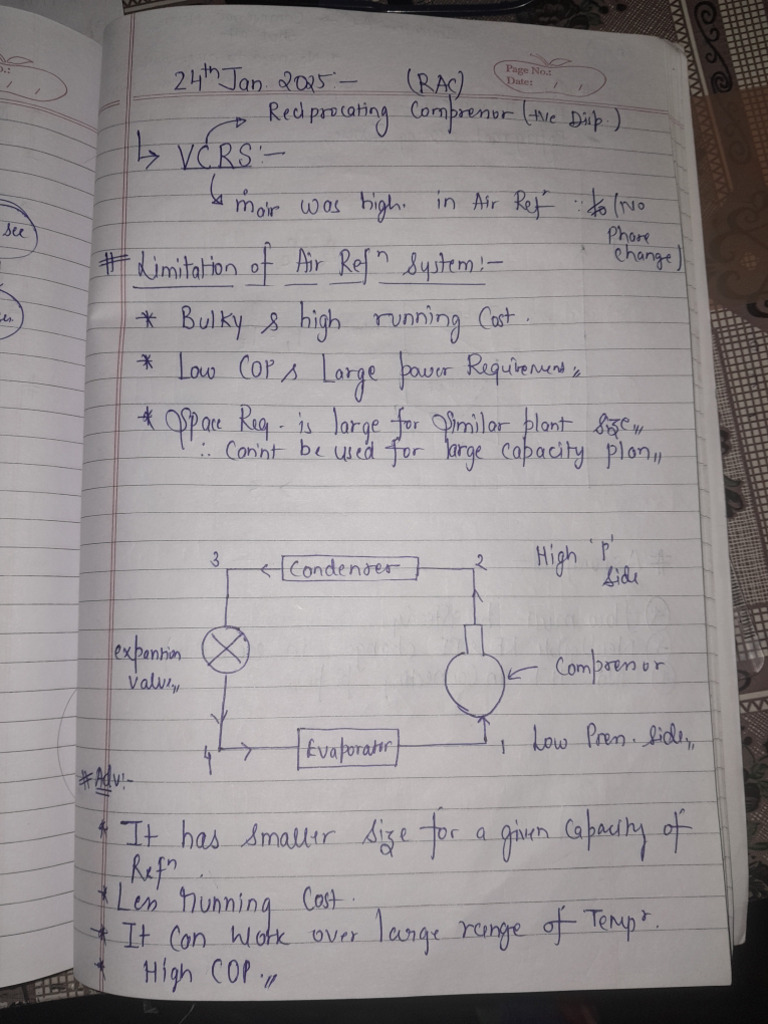 24th Jan. 2025:- (RAC)
Page No.:
Date: / /
Reciprocating Compressor (+ve Disp.)
↳ VCRS:-
ṁair was high. in Air Ref^n ∵ to (No
Phase
change)
# Limitation of Air Ref^n System:-
* Bulky & high running Cost.
* Low COP & Large power Requirement,,
* Space Req. is large for Similar plant Size,,
∴ Con'nt be used for large capacity plan,,
3 Condenser 2 High 'P'
Side
expansion
valve,,
Compressor
4 Evaporator 1 Low Press. Side,,
# Adv:-
* It has smaller size for a given Capacity of
Ref^n.
* Less running Cost.
* It Can Work over large range of Temp^r.
* High COP.,,
see